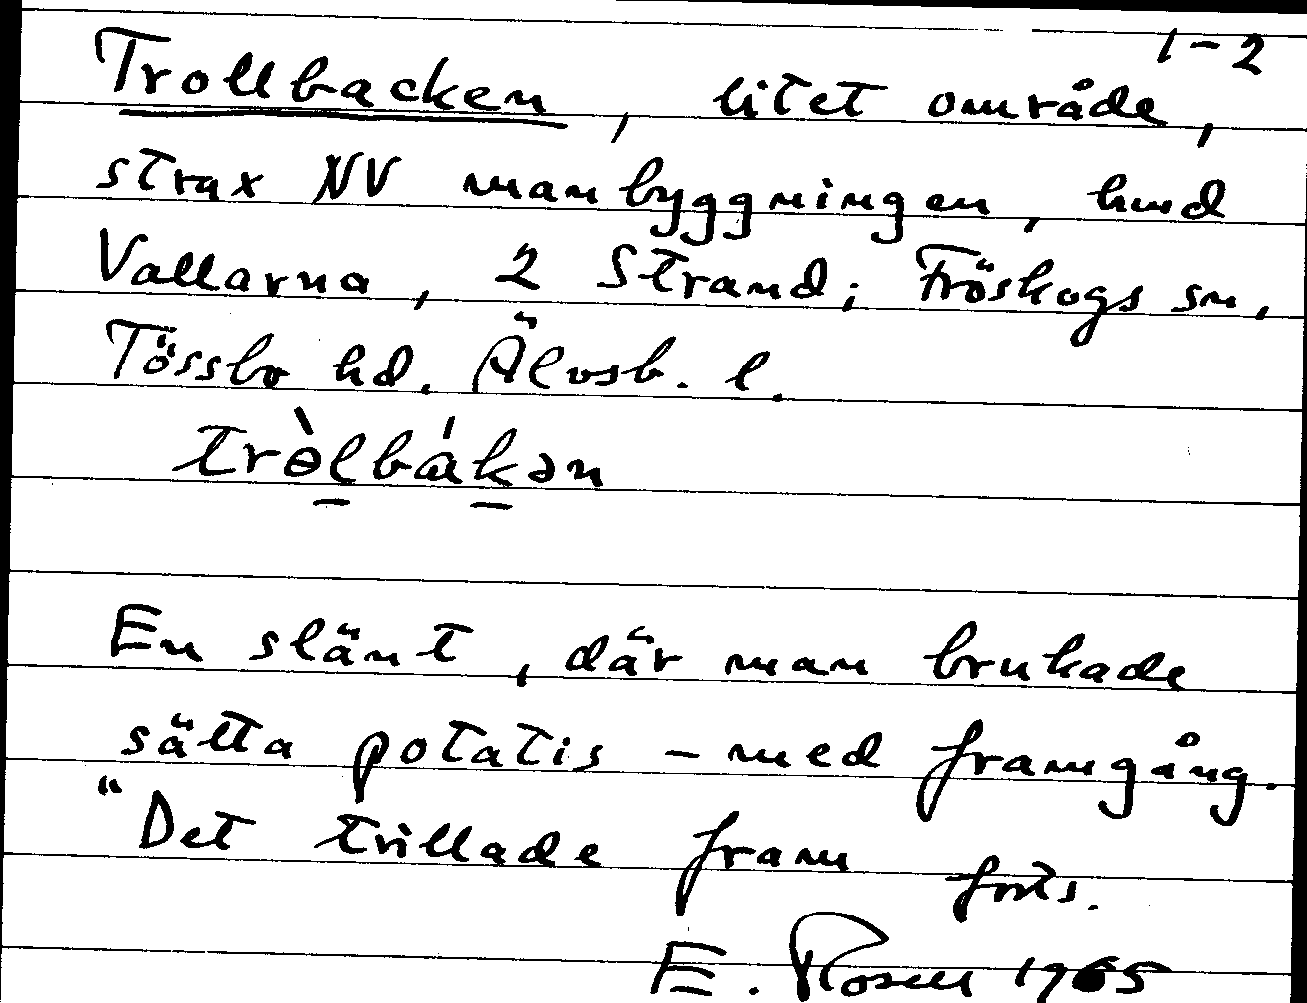 1-2
Trollbacken, litet område,
strax NV manbyggningen, hmd
Vallarna, 2 Strand; Fröskogs sn,
Tössbo hd. Älvsb. l.
trɵ̀lbákən
En slänt, där man brukade
sätta potatis – med framgång.
"Det trillade fram forts.
E. Rosell 1965